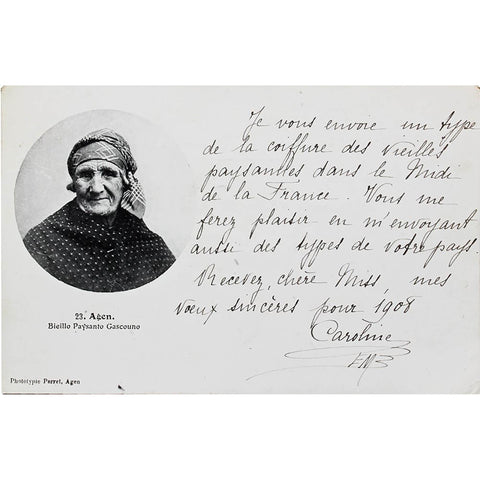 Je vous envoie un type
de la coiffure des vieilles
paysannes dans le Midi
de la France. Vous me
ferez plaisir en m'envoyant
aussi des types de votre pays.
Recevez, chère Miss, mes
voeux sincères pour 1908
Caroline
23. Agen.
Bieillo Paysanto Gascouno
Phototypie Parret, Agen